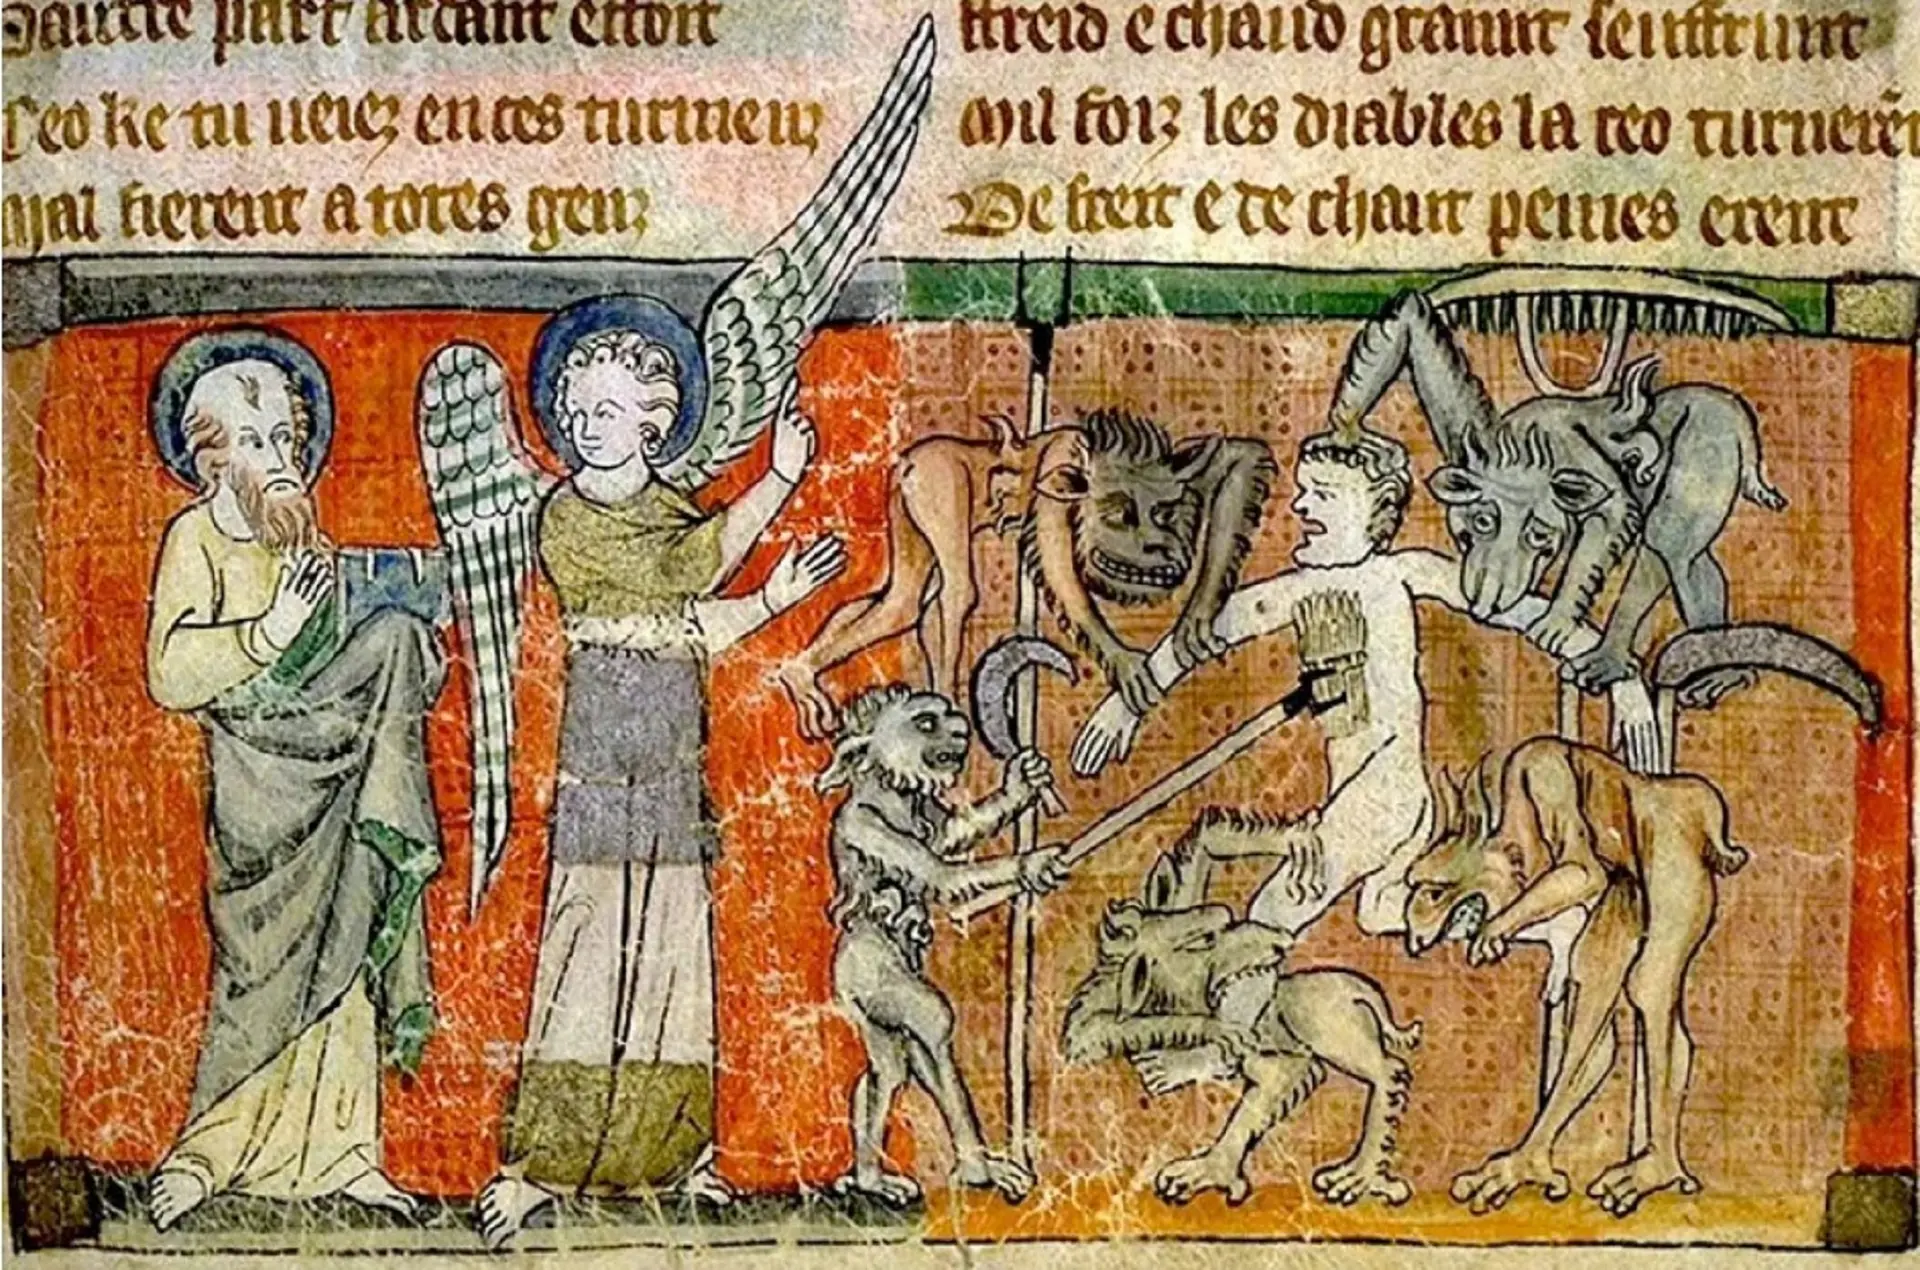 Dautre part ardant estoit
Ceo ke tu veiez en ces turmenz
Mal fierent a totes genz
ffreid e chaud
Mil foiz les diables la ceo turnerēt
De freit e de chaut peines erent